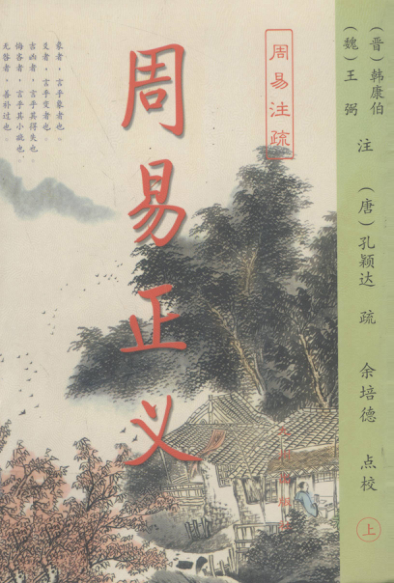 （魏）王弼 （晋）韩康伯 注 （唐）孔颖达 疏 余培德 点校 上
周易注疏
周易正义
象者，言乎象者也。
爻者，言乎变者也。
吉凶者，言乎其得失也。
悔吝者，言乎其小疵也。
无咎者，善补过也。